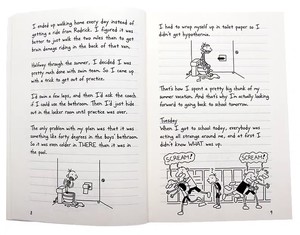 I ended up walking home every day instead of
getting a ride from Rodrick. I figured it was
better to just walk the two miles than to get
brain damage riding in the back of that van.
Halfway through the summer, I decided I was
pretty much done with swim team. So I came
up with a trick to get out of practice.
I'd swim a few laps, and then I'd ask the coach
if I could use the bathroom. Then I'd just hide
out in the locker room until practice was over.
The only problem with my plan was that it was
something like forty degrees in the boys' bathroom.
So it was even colder in THERE than it was in
the pool.
I had to wrap myself up in toilet paper so I
didn't get hypothermia.
That's how I spent a pretty big chunk of my
summer vacation. And that's why I'm actually looking
forward to going back to school tomorrow.
Tuesday
When I got to school today, everybody was
acting all strange around me, and at first I
didn't know WHAT was up.
SCREAM!
SCREAM!